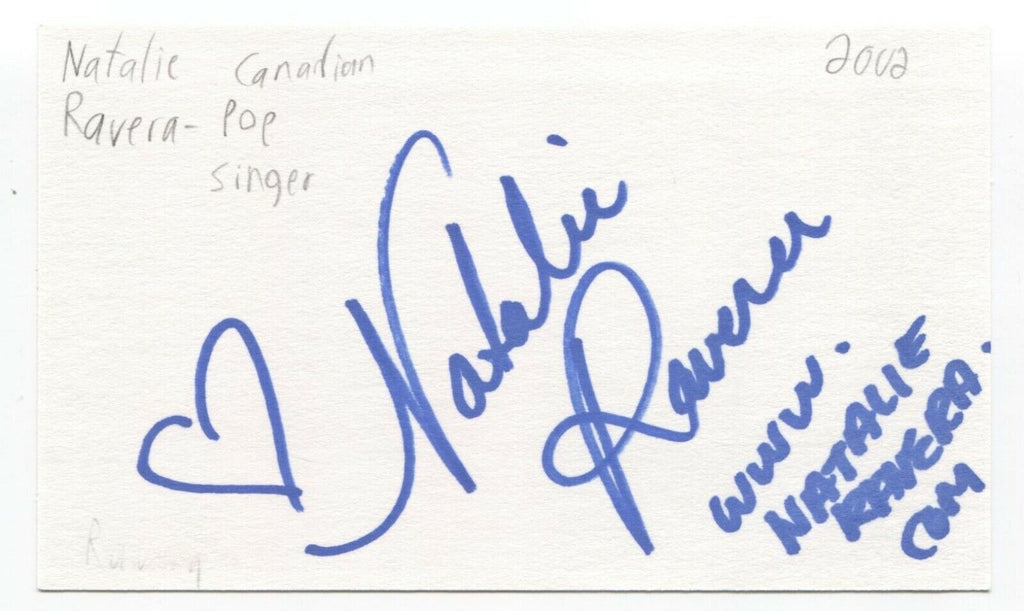 Natalie Canadian 2002
Ravera- Pop
singer
Natalie
Ravera
WWW.
NATALIE
RAVERA.
COM